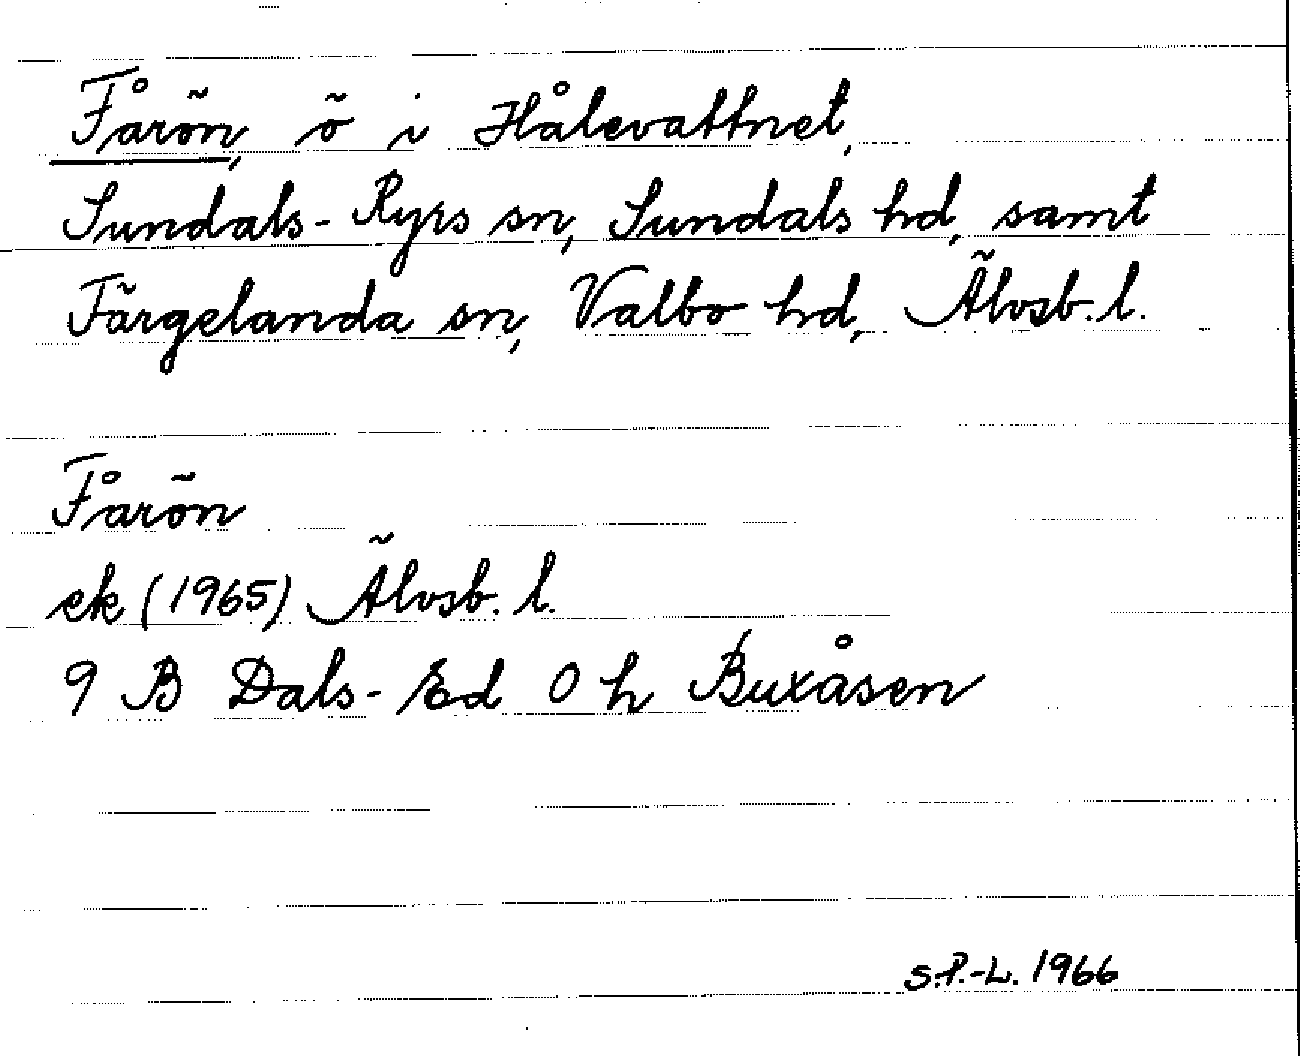 Fårön, ö i Hålevattnet,
Sundals-Ryrs sn, Sundals hd, samt
Färgelanda sn, Valbo hd, Älvsb. l.
Fårön
ek (1965) Älvsb. l.
9 B Dals-Ed 0 h Buxåsen
S.P.-L. 1966